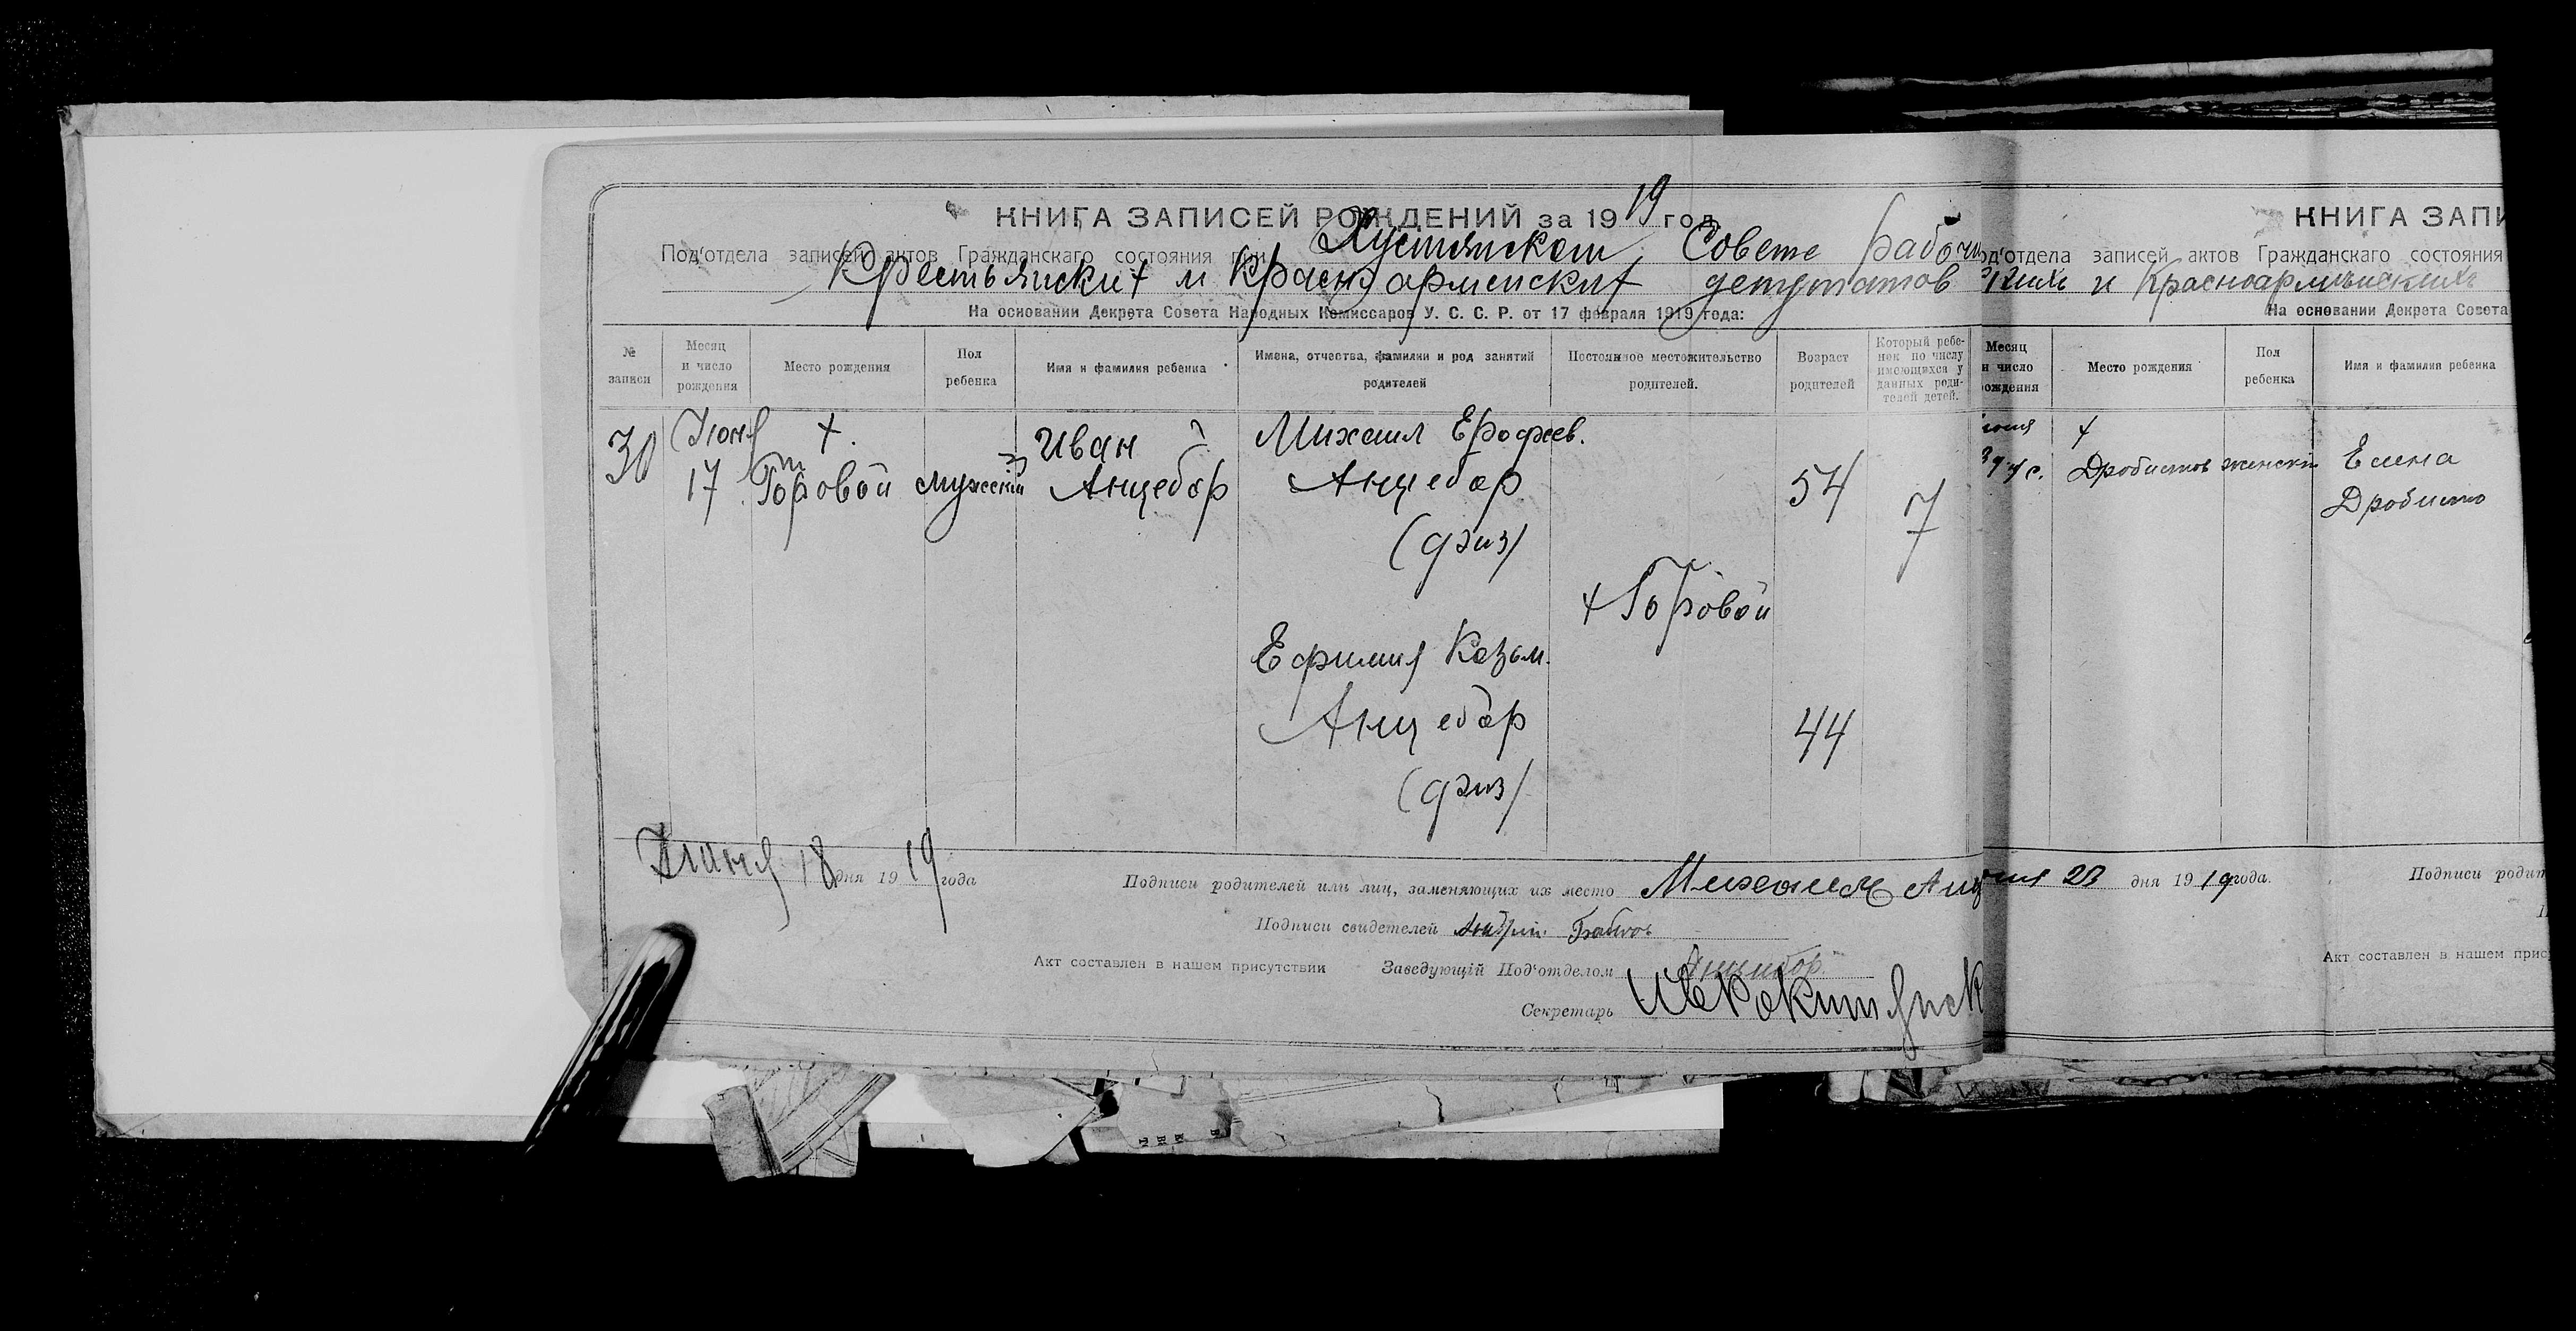 КНИГА ЗАПИСЕЙ РОЖДЕНИЙ за 1919 год
Под'отдела записей актов Гражданскаго состояния при Хустянском Совете рабочи
Крестьянских и Красноармейских депутатов
На основании Декрета Совета Народных Комиссаров У. С. С. Р. от 17 февраля 1919 года:
№ записи
Месяц и число рождения
Место рождения
Пол ребенка
Имя и фамилия ребенка
Имена, отчества, фамилии и род занятий родителей
Постоянное местожительство родителей.
Возраст родителей
Который ребенок по числу имеющихся у данных родителей детей.
30
Июня
17
х.
Горовой
мужский
Иван
Анцебор
Михаил Ерофеев.
Анцебор
54
7
х Горовой
Ефимия Козьм.
Анцебор
44
Июня 18 дня 1919 года
Подписи родителей или лиц, заменяющих их место Михаилъ Анц
Подписи свидетелей Андрій Бабичъ
Акт составлен в нашем присутствии Заведующій Под'отделом Анцибор
Секретарь
КНИГА ЗАПИ
од'отдела записей актов Гражданскаго состояния
и Красноармейскихъ
На основании Декрета Совета
Месяц и число рождения
Место рождения
Пол ребенка
Имя и фамилия ребенка
х
женский
Елена
Дробитько
23 дня 1919 года.
Подписи родит
Акт составлен в нашем прис